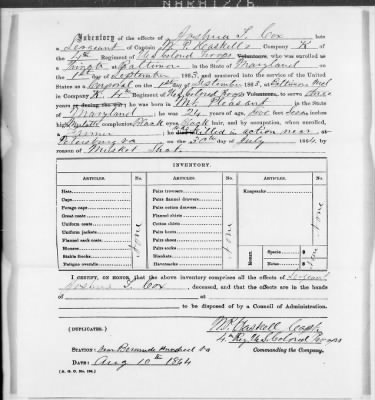 Inventory of the effects of Joshua T. Cox late
a Sergeant of Captain W. P. Haskell's Company K of
the 4th Regiment of US Colored Troops Volunteers, who was enrolled as
Private at Baltimore in the State of Maryland on
the 1st day of September 1863, and mustered into the service of the United
States as a Corporal on the 1st day of September 1863, at Baltimore Md
in Company K, 4th Regiment of US Colored Troops Volunteers to serve three
years or during the war; he was born in Mt Pleasant in the State of
Maryland; he was 24 years of age, five feet seven inches
high, Mulatto complexion, Black eyes, Black hair, and by occupation, when enrolled,
a Farmer; he was killed in action near at
Petersburg Va on the 30th day of July 1864, by
reason of Musket Shot.
INVENTORY.
ARTICLES. No. ARTICLES. No. ARTICLES. No.
Hats
Caps
Forage caps
Great coats
Uniform coats
Uniform jackets
Flannel sack coats
Blouses
Stable frocks
Fatigue overalls
None
Pairs trowsers
Pairs flannel drawers
Pairs cotton drawers
Flannel shirts
Cotton shirts
Pairs boots
Pairs shoes
Pairs socks
Blankets
Haversacks
None
Knapsacks
None
MONEY. Specie $
Notes $
None
I CERTIFY, ON HONOR, that the above inventory comprises all the effects of Sergeant
Joshua T. Cox, deceased, and that the effects are in the hands
of at
to be disposed of by a Council of Administration.
(DUPLICATES.)
W. P. Haskell Capt
4th Reg U.S. Colored Troops
Commanding the Company.
STATION: Near Bermuda Hundred Va
DATE: Aug 10th 1864